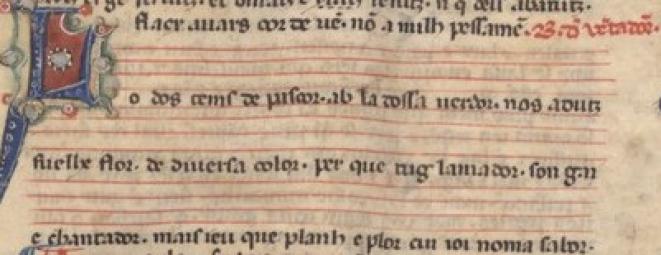 auars cor de uē. nō a nulh pessamē. B. d̄ vētador.
L o dos tems de pascor. ab la dossa uerdor. nos adutz
fuelhe flor. de diuersa color. per que tug lamador. son gai
e chantador. mais ieu que planh e plor cui ioi noma sabor.